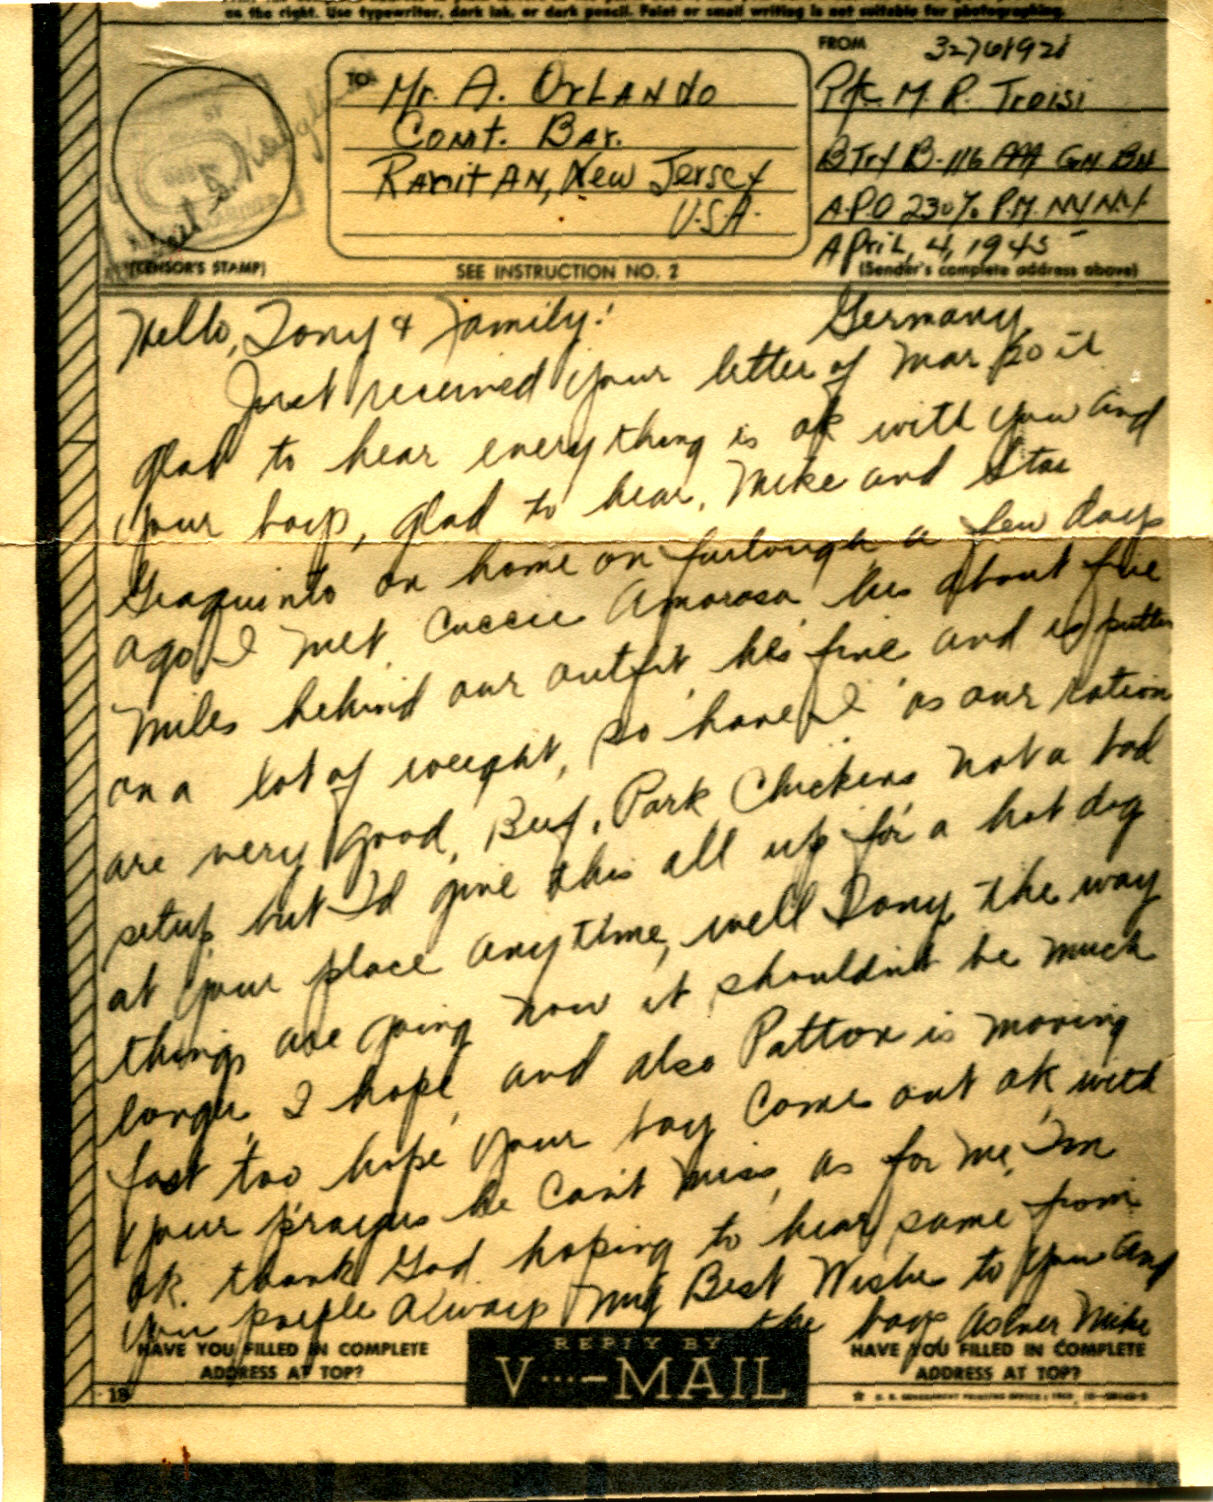 on the right. Use typewriter, dark ink, or dark pencil. Faint or small writing is not suitable for photographing.
TO
Mr. A. Orlando
Cont. Bar.
Raritan, New Jersey
U.S.A.
FROM
32761921
Pfc M. R. Troisi
Btry B-116 AAA Gn Bn
A.P.O 230 % P.M. NY NY
April, 4, 1945
(CENSOR'S STAMP)
SEE INSTRUCTION NO. 2
(Sender's complete address above)
Germany
Hello, Tony & Family!
Just received your letter of Mar 20 it
glad to hear everything is ok with you and
your boys, glad to hear, Mike and
on home on furlough a few days
ago I met Cuccie Amorosa hes about five
miles behind our outfit hes fine and is puttin
on a lot of weight, so have I as our ration
are very good, Beef, Pork Chickens not a bad
setup but I'd give this all up for a hot dog
at your place anytime, well Tony the way
things are going now it shouldn't be much
longer I hope, and also Patton is moving
fast too hope your boy comes out ok with
your prayers he can't miss, as for me, I'm
ok. thank God hoping to hear same from
you people always my Best Wishes to you and
the boys Mike
HAVE YOU FILLED IN COMPLETE
ADDRESS AT TOP?
REPLY BY
V···—MAIL
HAVE YOU FILLED IN COMPLETE
ADDRESS AT TOP?